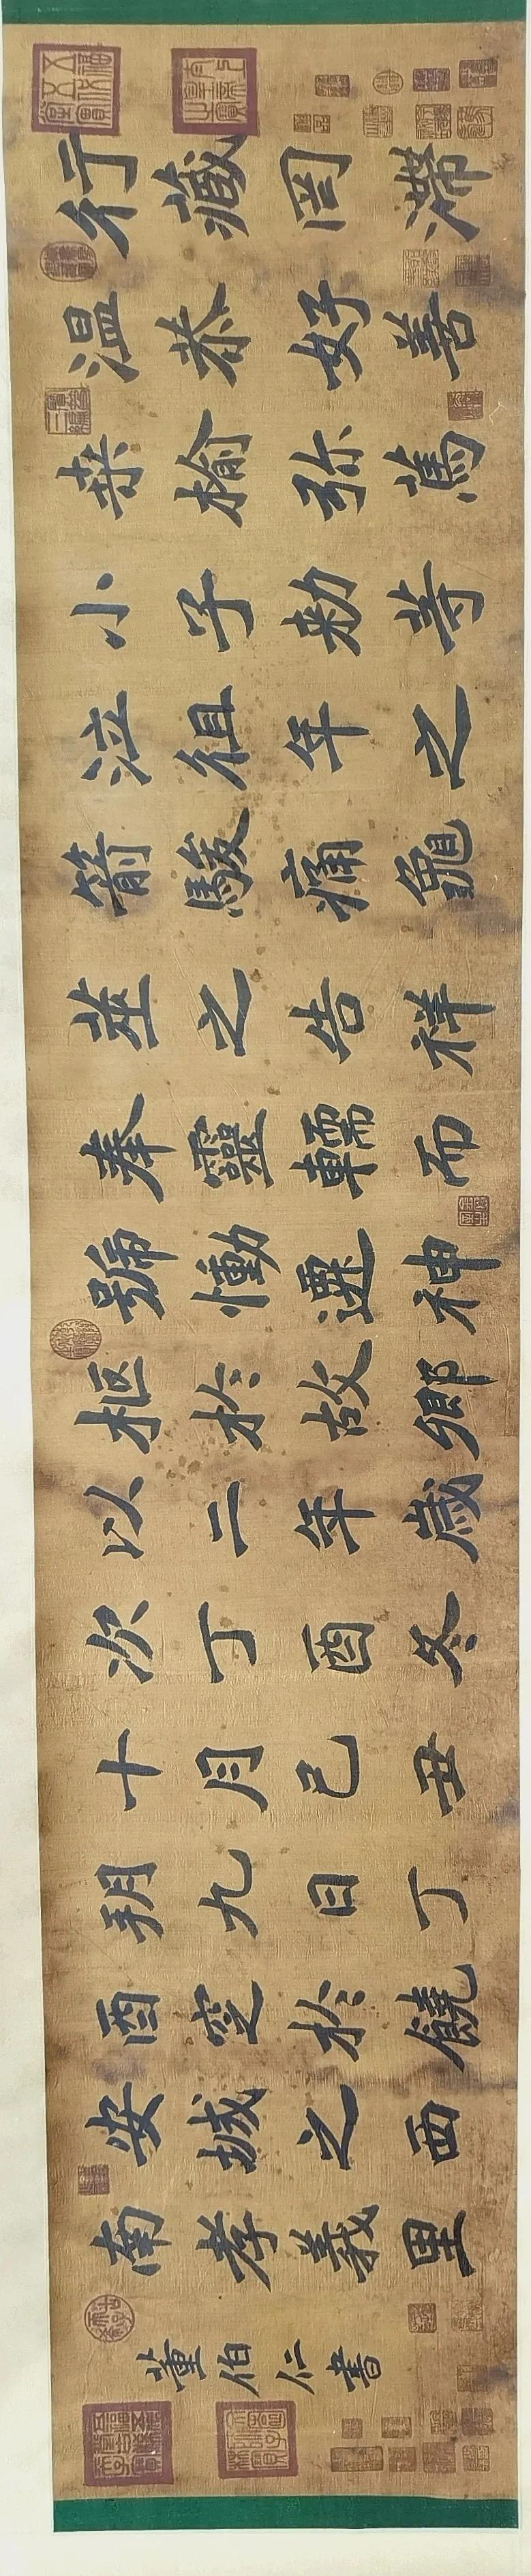 行藏罔滯
温恭好善
桒榆弥篤
小子勑等
泣徂年之
箭駿痛龜
並之告祥
奉靈輀而
號慟遷神
柩於故鄉
以二年歲
次丁酉冬
十月己丑
朔九日丁
酉窆於饒
安城之西
南孝義里
董伯仁書